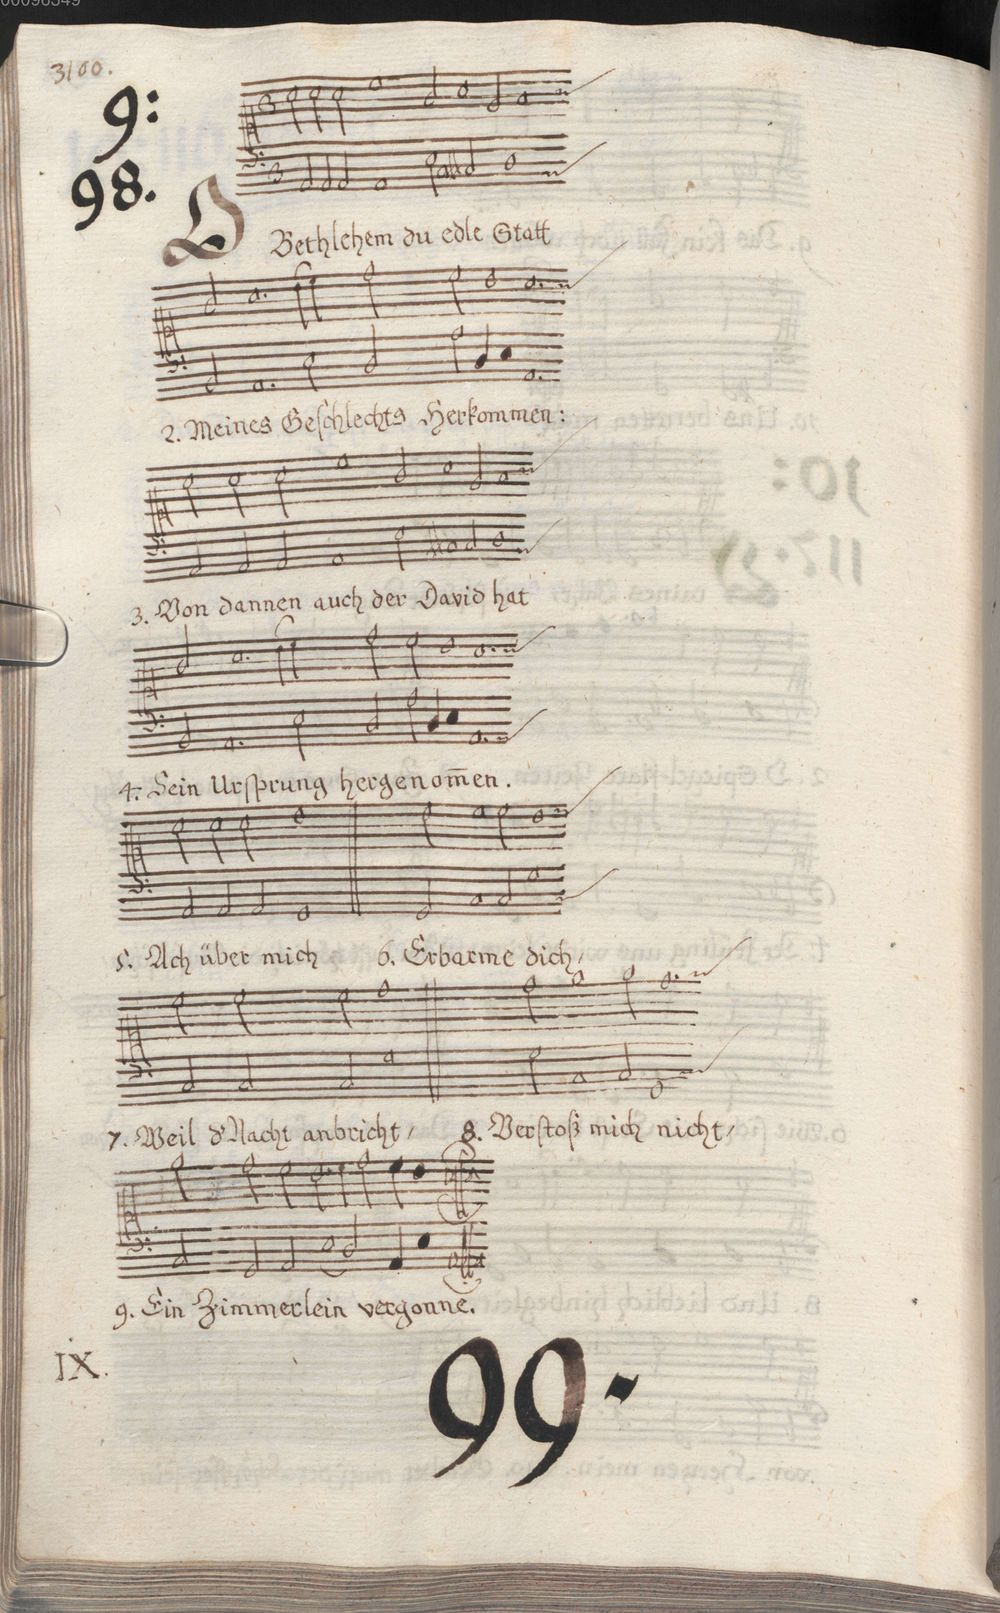 3100.
9:
98.
O Bethlehem du edle Statt
2. Meines Geschlechts Herkommen:
3. Von dannen auch der David hat
4. Sein Ursprung hergenom̄en.
5. Ach über mich 6. Erbarme dich,
7. Weil d'Nacht anbricht, 8. Verstoß mich nicht,
9. Ein Zimmerlein vergonne.
IX.
99.